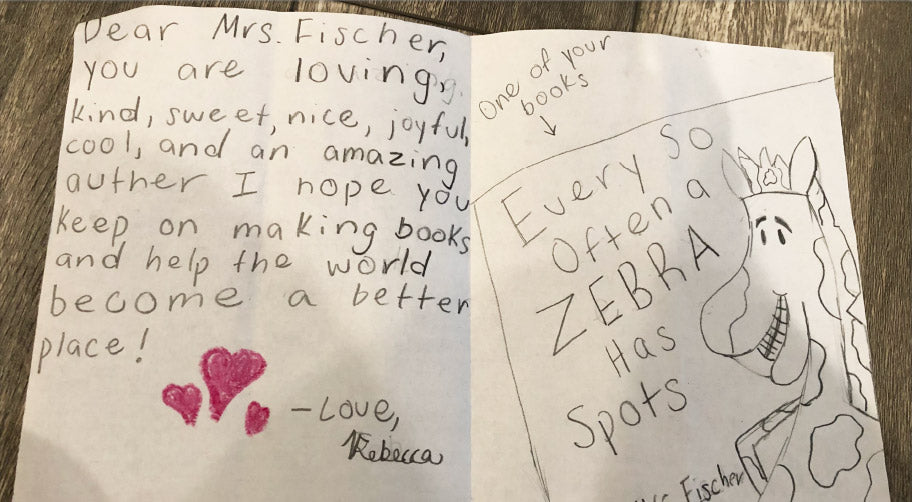 Dear Mrs. Fischer,
you are loving,
kind, sweet, nice, joyful,
cool, and an amazing
auther I hope you
keep on making books
and help the world
become a better
place!
-Love,
Rebecca
One of your
books
Every So
Often a
ZEBRA
Has
Spots
Fischer